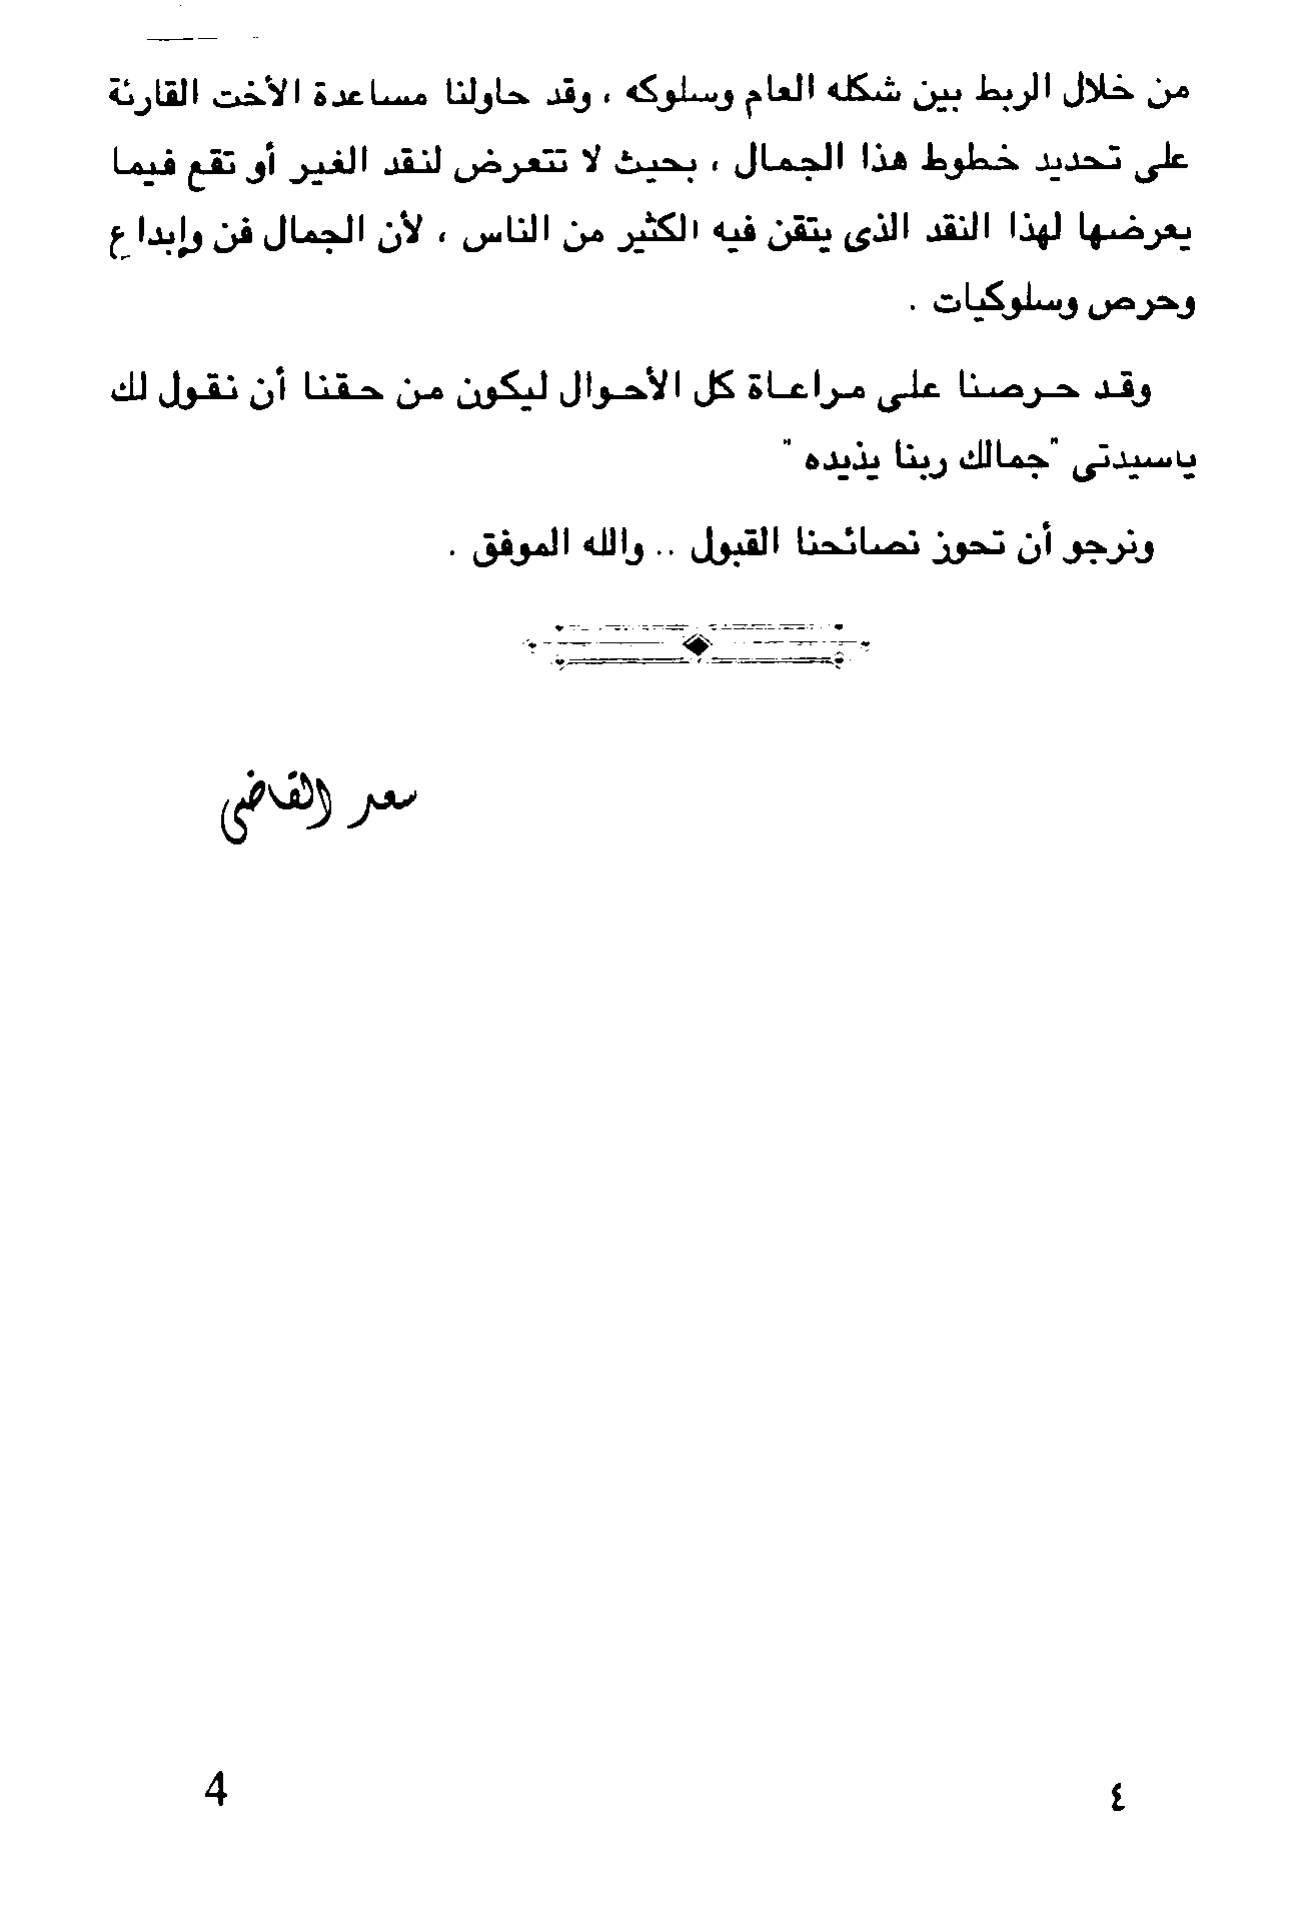 من خلال الربط بين شكله العام وسلوكه ، وقد حاولنا مساعدة الأخت القارئة
على تحديد خطوط هذا الجمال ، بحيث لا تتعرض لنقد الغير أو تقع فيما
يعرضها لهذا النقد الذى يتقن فيه الكثير من الناس ، لأن الجمال فن وإبداع
وحرص وسلوكيات .
وقد حرصنا على مراعاة كل الأحوال ليكون من حقنا أن نقول لك
ياسيدتى "جمالك ربنا يذيده "
ونرجو أن تحوز نصائحنا القبول .. والله الموفق .
سعد القاضى
4
٤